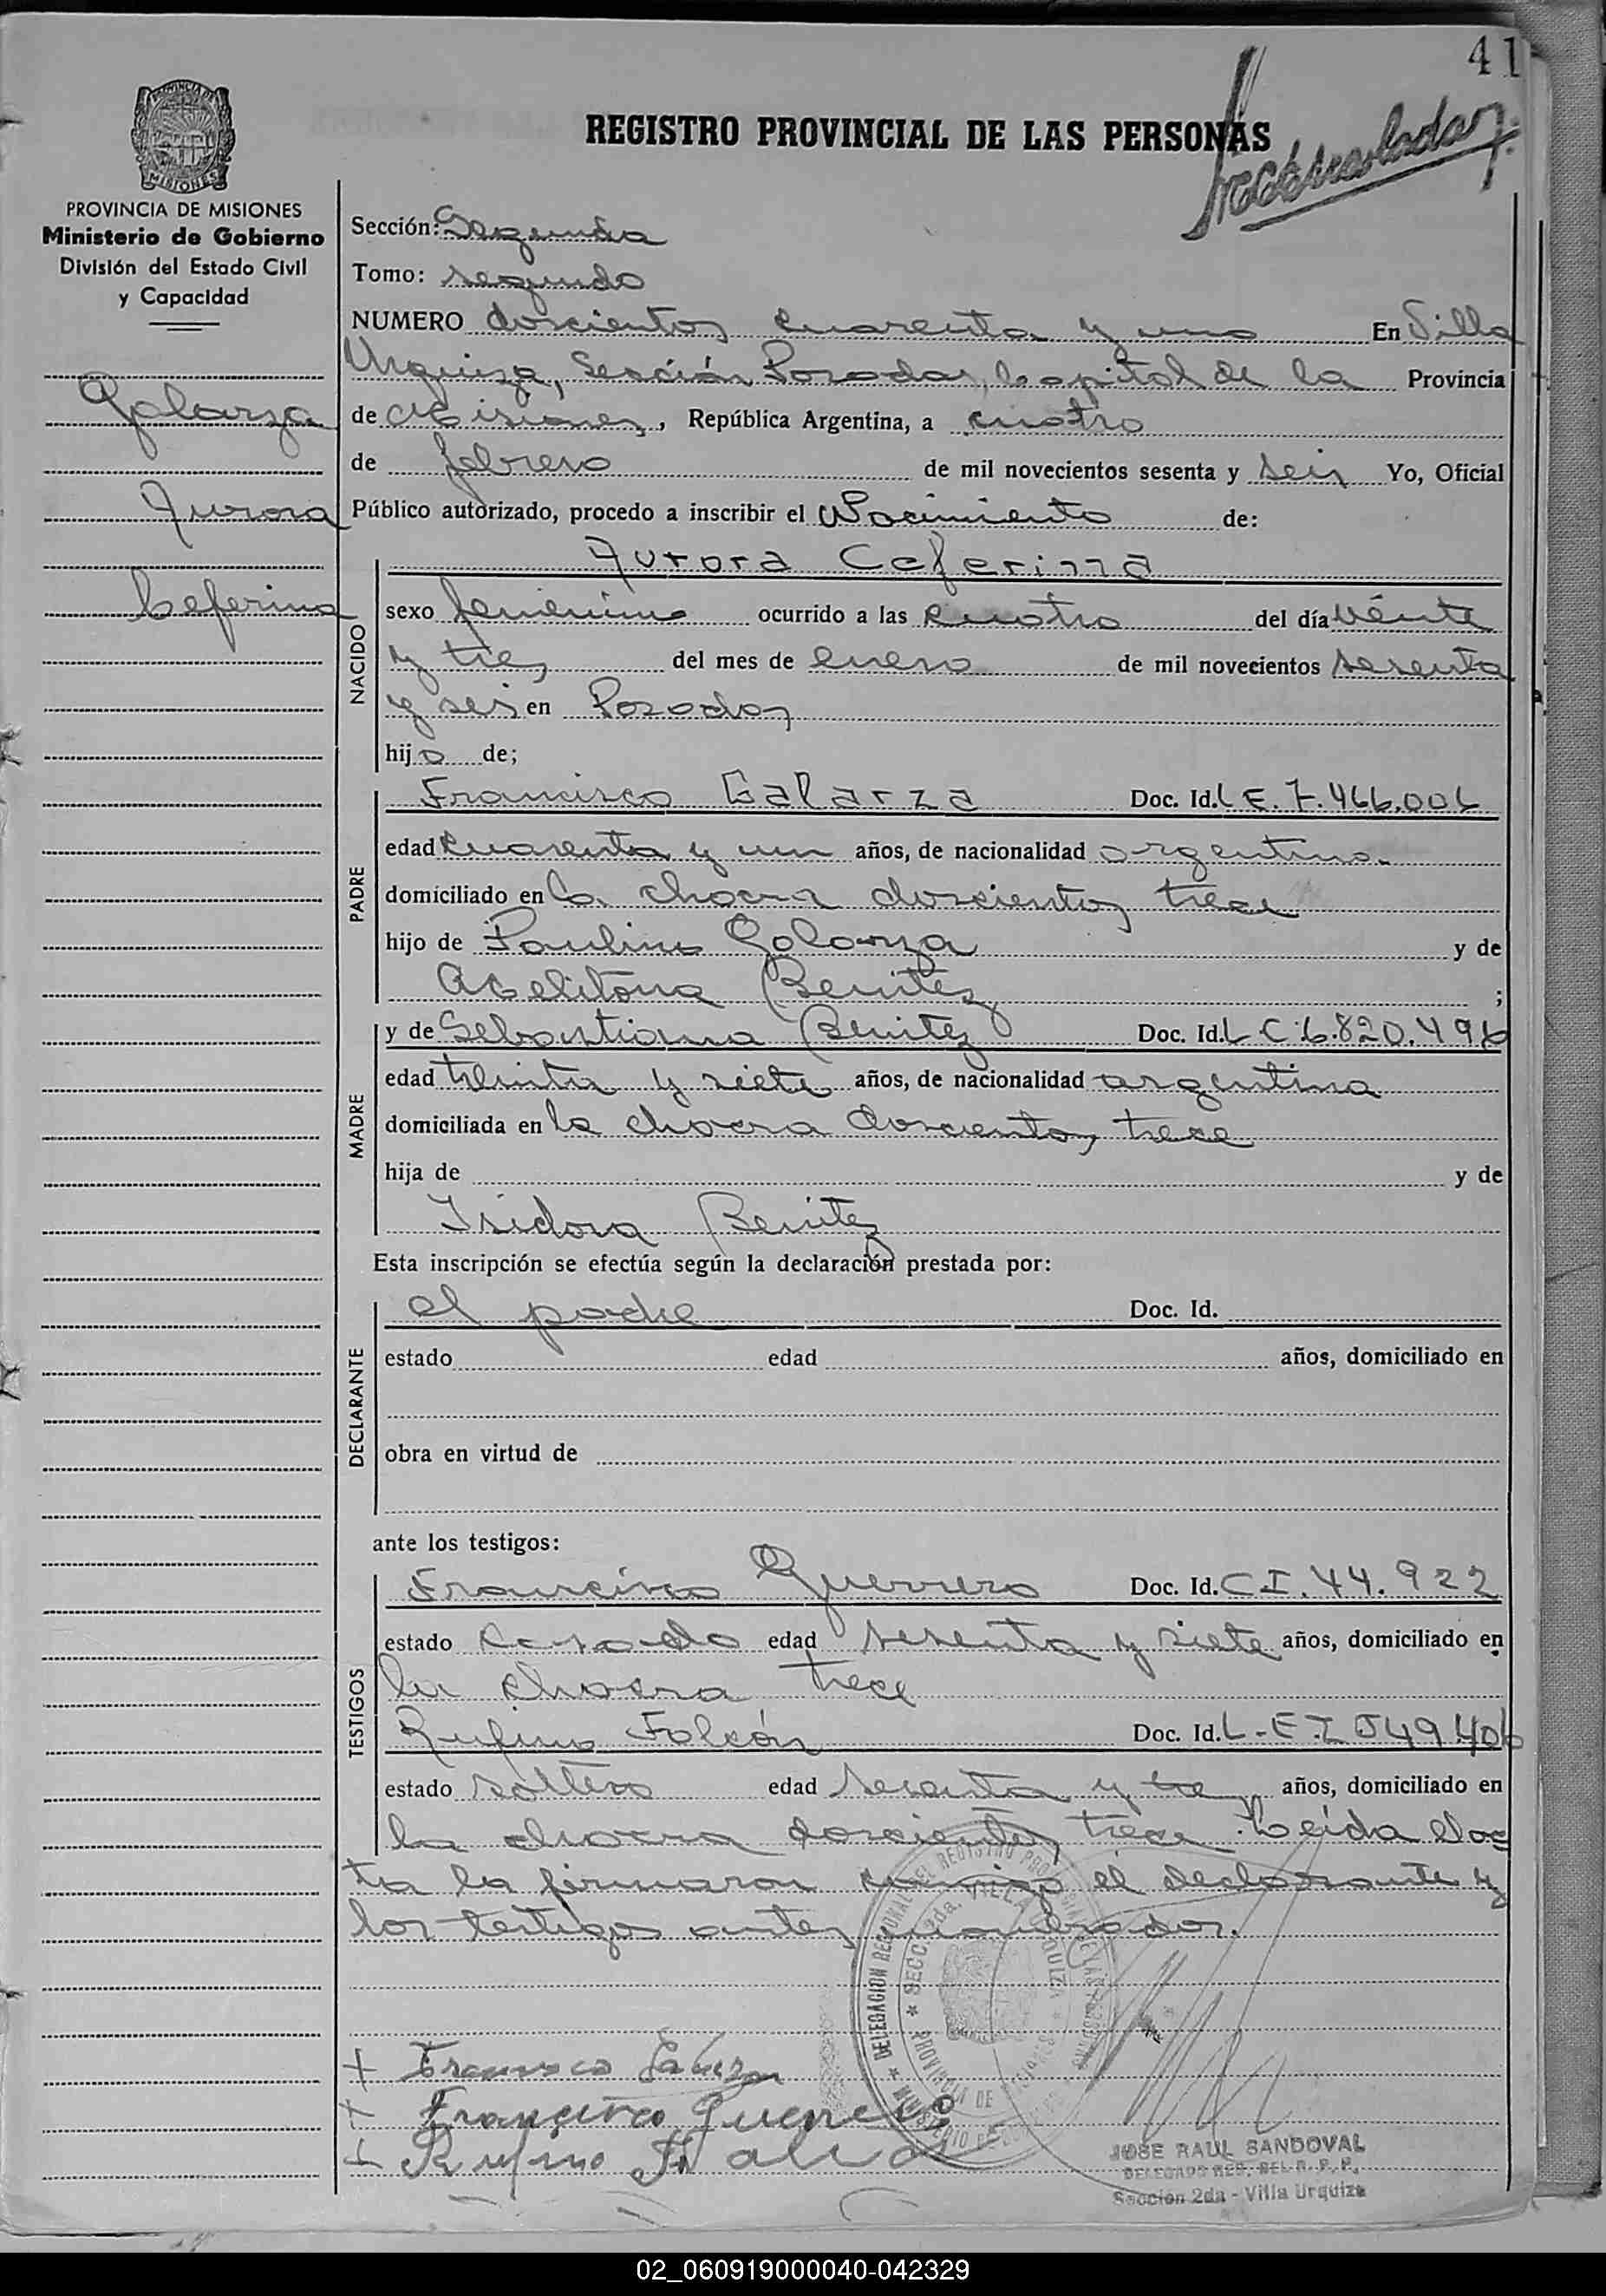 41
REGISTRO PROVINCIAL DE LAS PERSONAS
PROVINCIA DE MISIONES
MISIONES
PROVINCIA DE MISIONES
Ministerio de Gobierno
División del Estado Civil
y Capacidad
Galarza
Aurora
Ceferina
Sección: Segunda
Tomo: segundo
NUMERO doscientos cuarenta y uno En Villa
Urquiza, Sección Posadas, Capital de la Provincia
de Misiones, República Argentina, a cuatro
de febrero de mil novecientos sesenta y seis Yo, Oficial
Público autorizado, procedo a inscribir el Nacimiento de:
NACIDO
Aurora Ceferina
sexo femenino ocurrido a las cuatro del día veinte
y tres del mes de enero de mil novecientos sesenta
y seis en Posadas
hija de;
PADRE
Francisco Galarza Doc. Id. L E. 7.466.006
edad cuarenta y un años, de nacionalidad argentina.
domiciliado en la chacra doscientos trece
hijo de Paulino Galarza y de
Melitona Benitez ;
MADRE
y de Sebastiana Benitez Doc. Id. L C 6.820.496
edad treinta y siete años, de nacionalidad argentina
domiciliada en la chacra doscientos trece
hija de y de
Isidora Benitez
Esta inscripción se efectúa según la declaración prestada por:
DECLARANTE
el padre Doc. Id.
estado edad años, domiciliado en
obra en virtud de
ante los testigos:
TESTIGOS
Francisco Guerrero Doc. Id. C I. 44. 922
estado casado edad sesenta y siete años, domiciliado en
la chacra trece
Rufino Falcón Doc. Id. L-E 7 549 406
estado soltero edad sesenta y tres años, domiciliado en
la chacra doscientos trece. Leída el ac
ta la firmaron conmigo el declarante y
los testigos antes nombrados.
Francisco Galarza
Francisco Guerrero
Rufino Falcó
DELEGACION REGIONAL DEL REGISTRO
SECC. 2da. VILLA URQUIZA
PROVINCIA DE MISIONES
JOSE RAUL SANDOVAL
DELEGADO REG. DEL R. P. P.
Sección 2da - Villa Urquiza
02_060919000040-042329